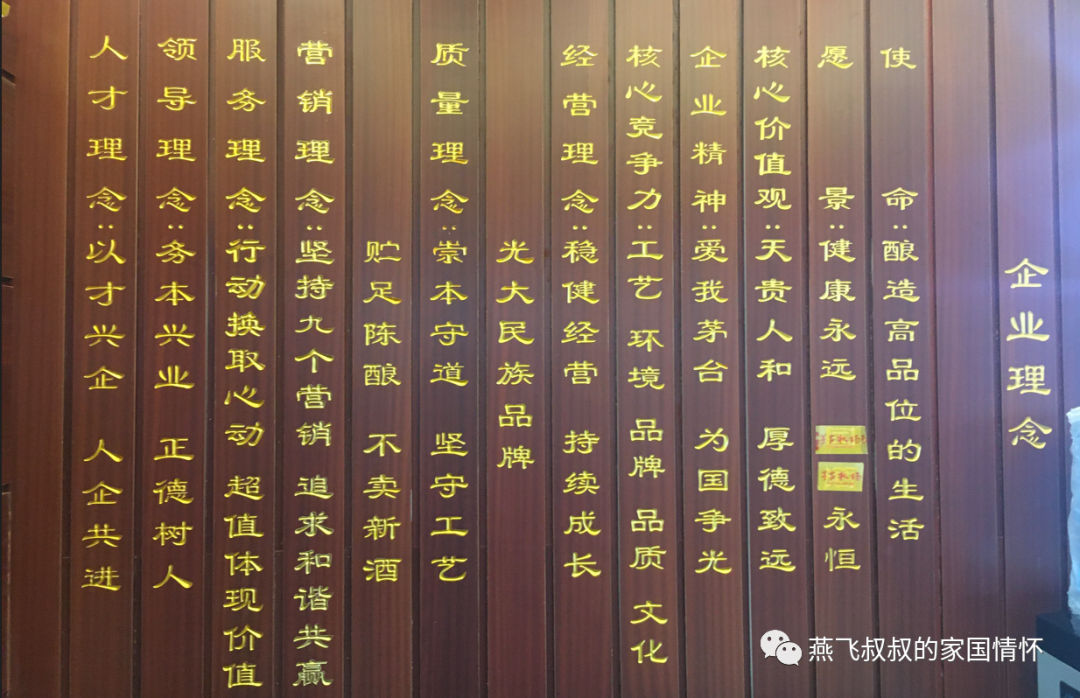 企业理念
使命:酿造高品位的生活
愿景:健康永远 永恒
核心价值观:天贵人和 厚德致远
企业精神:爱我茅台 为国争光
核心竞争力:工艺 环境 品牌 品质 文化
经营理念:稳健经营 持续成长
光大民族品牌
质量理念:崇本守道 坚守工艺
贮足陈酿 不卖新酒
营销理念:坚持九个营销 追求和谐共赢
服务理念:行动换取心动 超值体现价值
领导理念:务本兴业 正德树人
人才理念:以才兴企 人企共进
燕飞叔叔的家国情怀